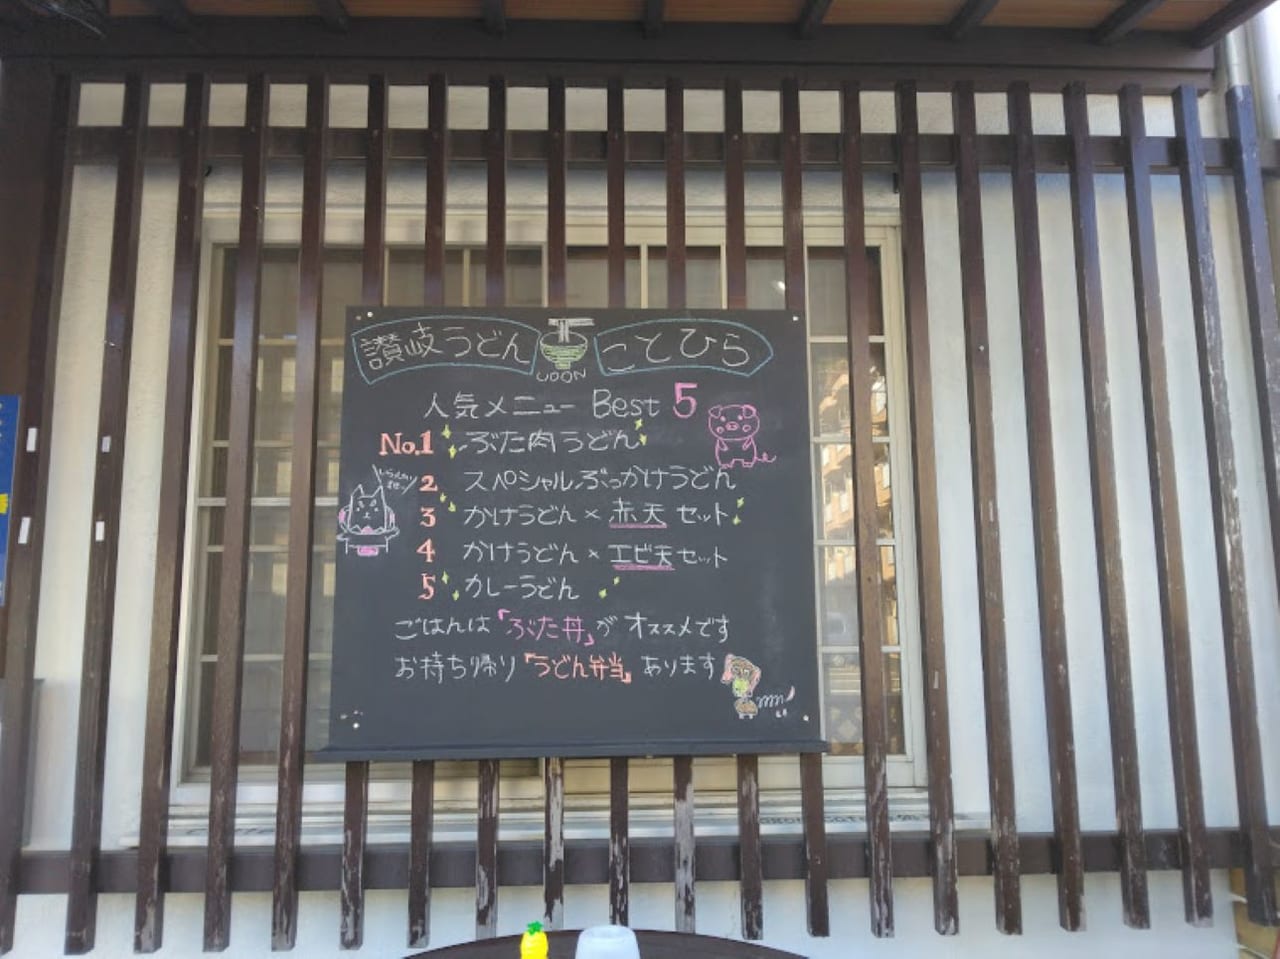 讃岐うどん UDON ことひら
人気メニュー Best 5
No.1 ぶた肉うどん
2 スペシャルぶっかけうどん
3 かけうどん × 赤天 セット
4 かけうどん × エビ天 セット
5 カレーうどん
ごはんは「ぶた丼」が オススメです
お持ち帰り「うどん弁当」あります